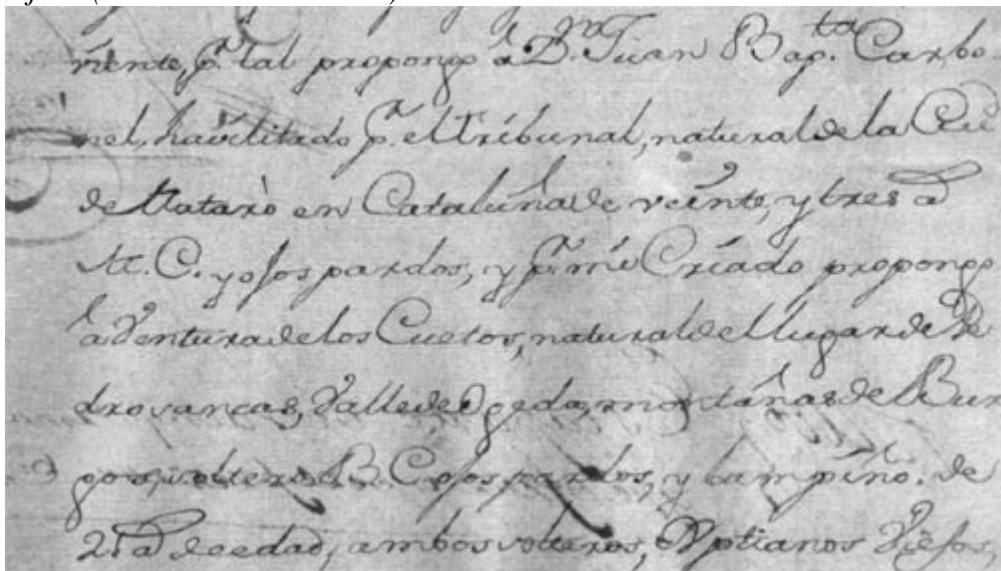 niente, p.ʳ tal propongo à D.ⁿ Juan Bap.ᵗᵃ Carbo
nel, havilitado p.ʳ el tribunal, natural de la Ciu
de Matarò en Cataluña de veinte, y tres a.ˢ
C. y ojos pardos, y p.ʳ mi Criado propongo
à Ventura de los Cuetos, natural del lugar de Pe
drovancas, Valle de montañas de Bur
gos, soltero B. C. ojos pardos, y lampiño. de
21 a.ˢ de edad, ambos solteros, Xptianos Viejos,